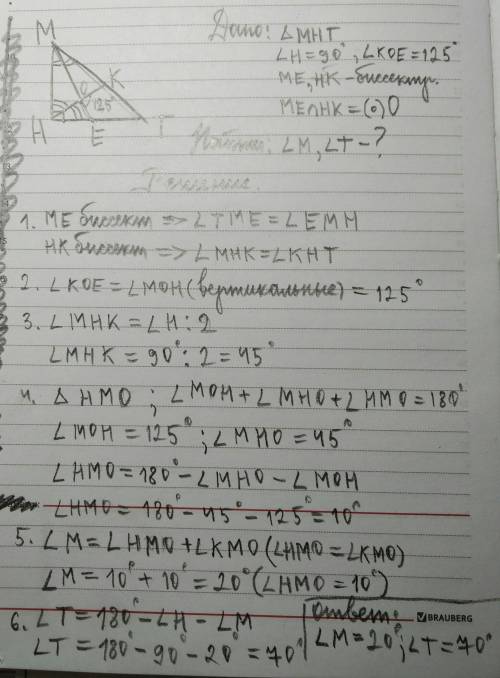 Дано: △МНТ
∠H=90°, ∠KOE=125°
ME, HK-биссектр.
ME∩HK=(•)O
Найти: ∠M, ∠T-?
M
K
O
125°
H
E
T
Решение.
1. ME биссект => ∠TME=∠EMH
HK биссект => ∠MHK=∠KHT
2. ∠KOE=∠MOH (вертикальные) = 125°
3. ∠MHK=∠H:2
∠MHK=90°:2=45°
4. △HMO; ∠MOH+∠MHO+∠HMO=180°
∠MOH=125°; ∠MHO=45°
∠HMO=180°-∠MHO-∠MOH
∠HMO=180°-45°-125°=10°
5. ∠M=∠HMO+∠KMO (∠HMO=∠KMO)
∠M=10°+10°=20° (∠HMO=10°)
6. ∠T=180°-∠H-∠M
∠T=180°-90°-20°=70°
Ответ:
∠M=20°; ∠T=70°
BRAUBERG